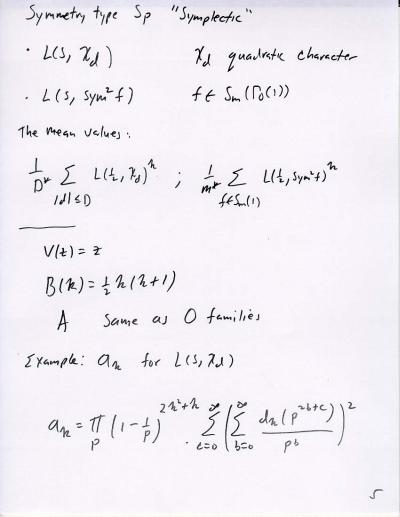 Symmetry type Sp "Symplectic"
· L(s, χ_d) χ_d quadratic character
· L(s, sym²f) f ∈ S_m(Γ₀(1))
The mean values:
1/D* Σ_{|d|≤D} L(½, χ_d)^k ; 1/m* Σ_{f∈S_m(1)} L(½, sym²f)^k
V(z) = z
B(k) = ½ k(k+1)
A same as O families
Example: a_k for L(s, χ_d)
a_k = ∏_p (1 - 1/p)^{2k²+k} · Σ_{c=0}^∞ (Σ_{b=0}^∞ d_k(p^{2b+c}) / p^b)²
5